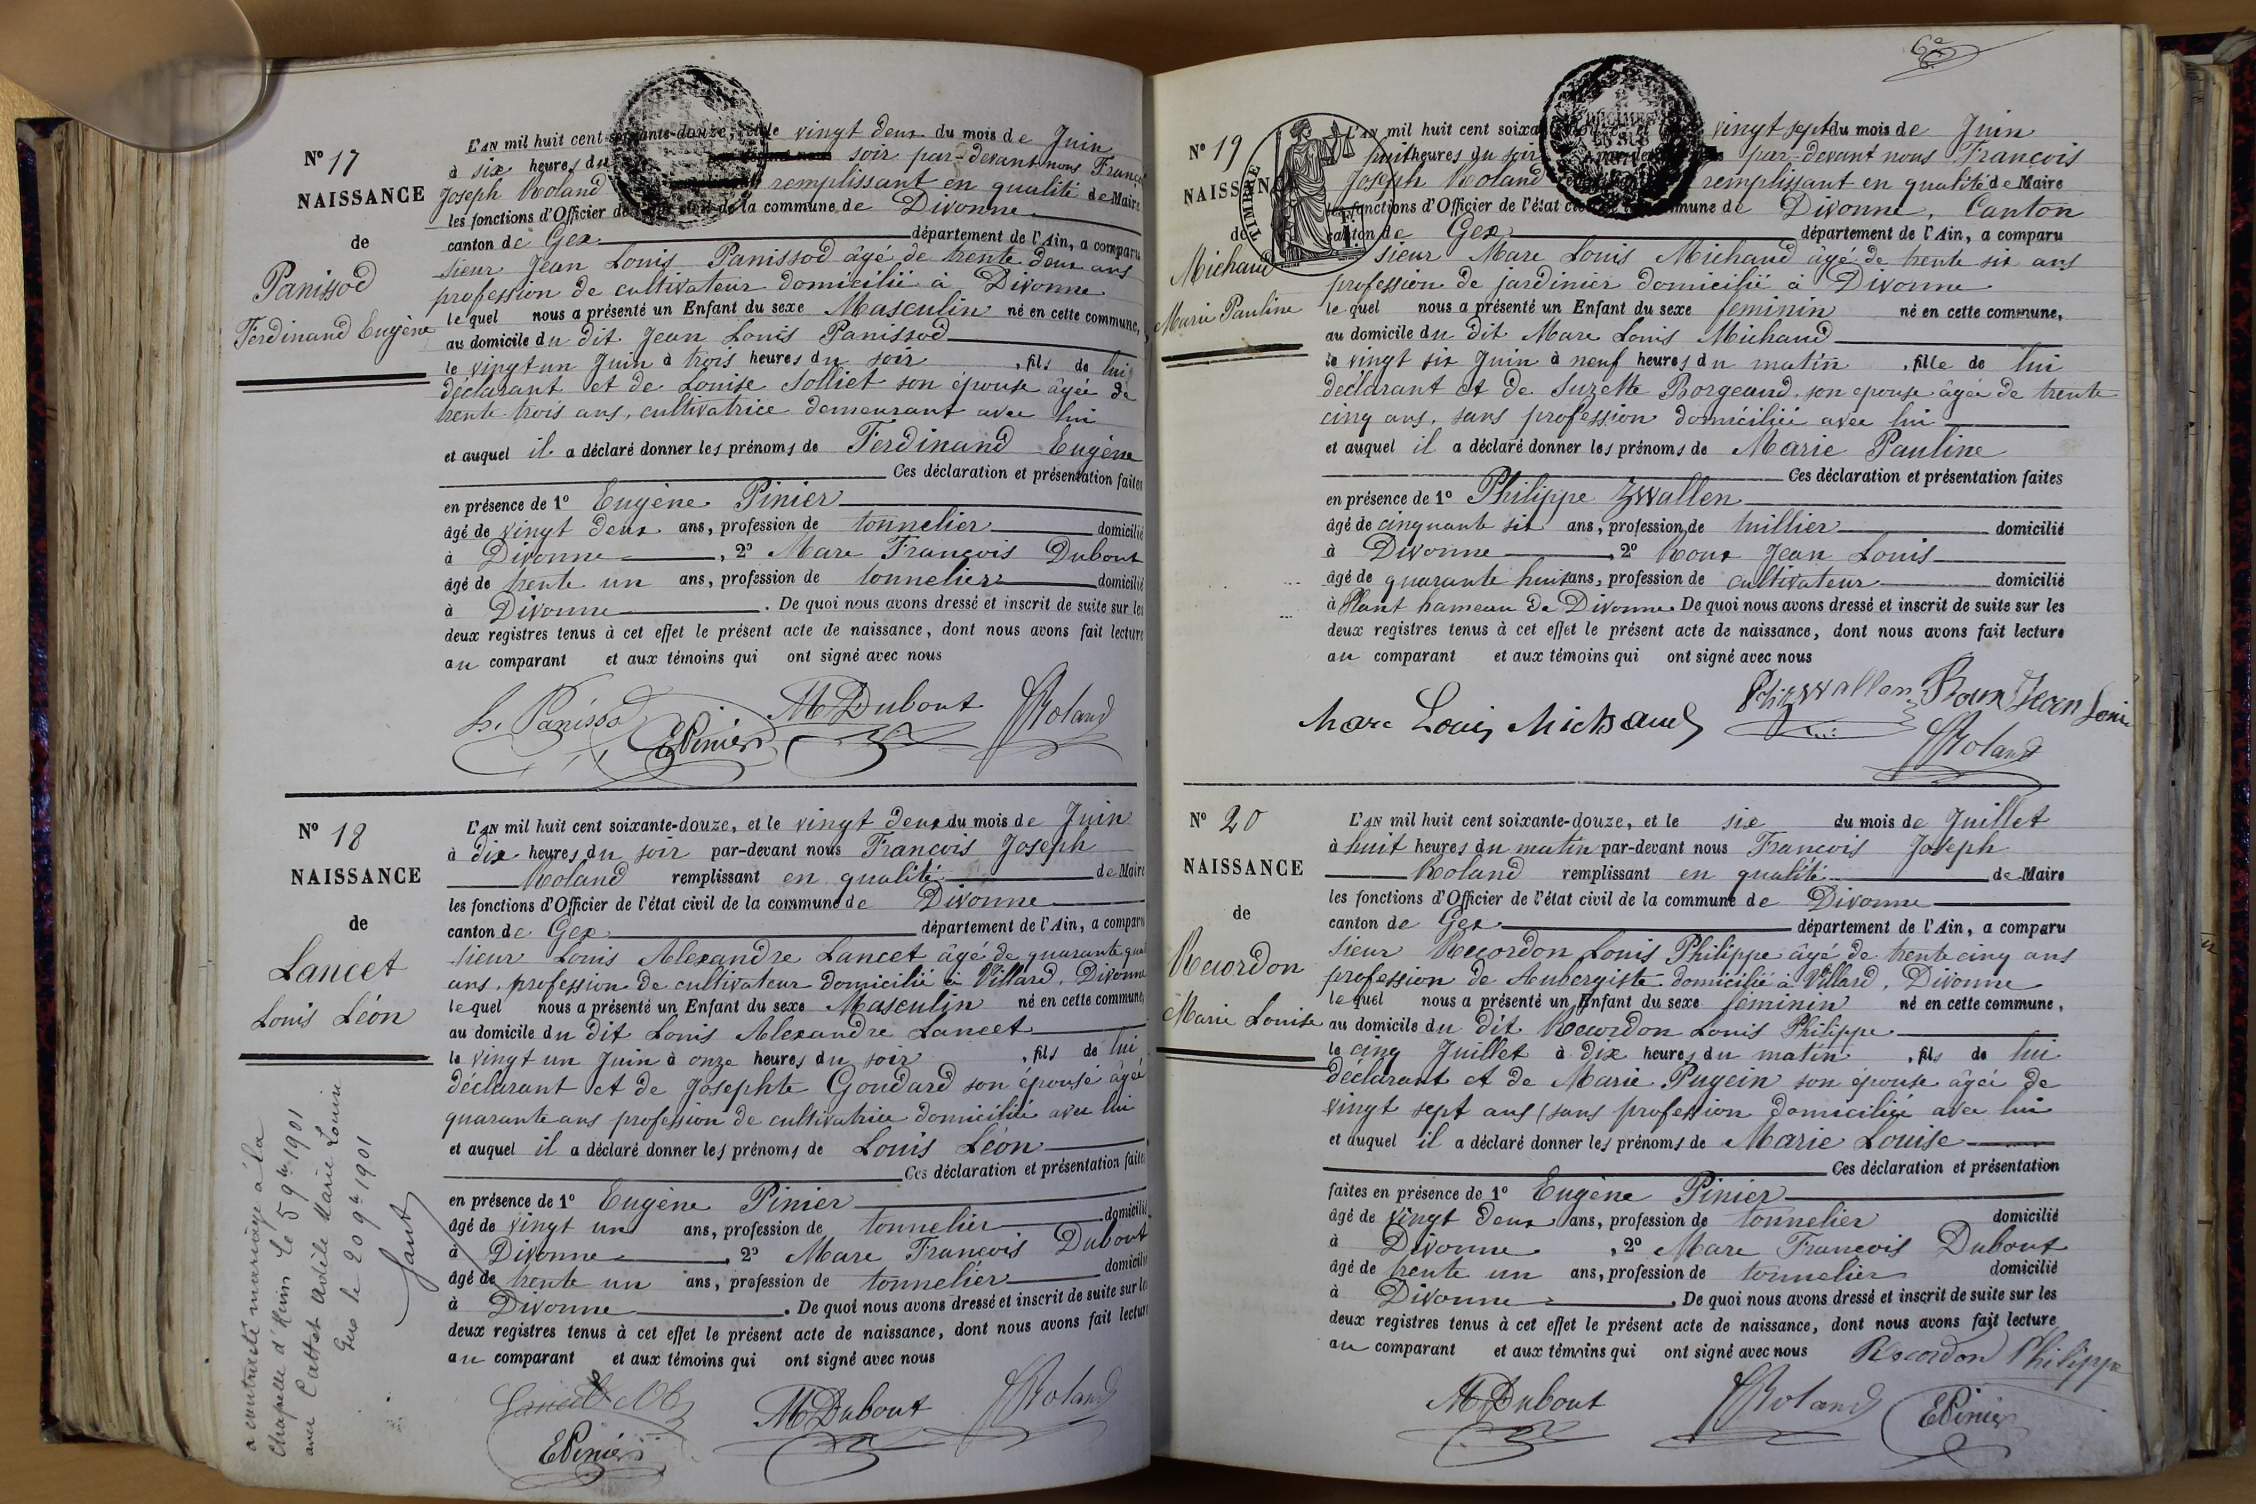 Nº 17
NAISSANCE
de
Panissod
Ferdinand Eugène
L'AN mil huit cent soixante-douze, et le vingt deux du mois de Juin
à six heures du soir par-devant nous François
Joseph Roland remplissant en qualité de Maire
les fonctions d'Officier de l'état civil de la commune de Divonne
canton de Gex département de l'Ain, a comparu
sieur Jean Louis Panissod âgé de trente deux ans
profession de cultivateur domicilié à Divonne
lequel nous a présenté un Enfant du sexe Masculin né en cette commune,
au domicile du dit Jean Louis Panissod
le vingt un Juin à trois heures du soir, fils de lui
déclarant et de Louise Solliet son épouse âgée de
trente trois ans, cultivatrice demeurant avec lui
et auquel il a déclaré donner les prénoms de Ferdinand Eugène
Ces déclaration et présentation faites
en présence de 1º Eugène Pinier
âgé de vingt deux ans, profession de tonnelier domicilié
à Divonne, 2º Marc François Dubout
âgé de trente un ans, profession de tonnelier domicilié
à Divonne. De quoi nous avons dressé et inscrit de suite sur les
deux registres tenus à cet effet le présent acte de naissance, dont nous avons fait lecture
au comparant et aux témoins qui ont signé avec nous
L. Panissod EPinier M Dubout JRoland
Nº 18
NAISSANCE
de
Lancet
Louis Léon
L'AN mil huit cent soixante-douze, et le vingt deux du mois de Juin
à dix heures du soir par-devant nous François Joseph
Roland remplissant en qualité de Maire
les fonctions d'Officier de l'état civil de la commune de Divonne
canton de Gex département de l'Ain, a comparu
sieur Louis Alexandre Lancet âgé de quarante
ans, profession de cultivateur domicilié à Villard, Divonne
lequel nous a présenté un Enfant du sexe Masculin né en cette commune,
au domicile du dit Louis Alexandre Lancet
le vingt un Juin à onze heures du soir, fils de lui
déclarant et de Josephte Goudard son épouse âgée
quarante ans profession de cultivatrice domiciliée avec lui
et auquel il a déclaré donner les prénoms de Louis Léon
Ces déclaration et présentation faites
en présence de 1º Eugène Pinier
âgé de vingt un ans, profession de tonnelier domicilié
à Divonne, 2º Marc François Dubout
âgé de trente un ans, profession de tonnelier domicilié
à Divonne. De quoi nous avons dressé et inscrit de suite sur les
deux registres tenus à cet effet le présent acte de naissance, dont nous avons fait lecture
au comparant et aux témoins qui ont signé avec nous
EPinier M Dubout JRoland
a contracté mariage à la
Chapelle d'Huin le 5 9bre 1901
avec Cattet Adèle Marie Louise
Gex le 20 9bre 1901
Nº 19
NAISSANCE
de
Michaud
Marie Pauline
TIMBRE
L'AN mil huit cent soixante-douze, et le vingt sept du mois de Juin
à huit heures du soir par-devant nous François
Joseph Roland remplissant en qualité de Maire
les fonctions d'Officier de l'état civil de la commune de Divonne, Canton
canton de Gex département de l'Ain, a comparu
sieur Marc Louis Michaud âgé de trente six ans
profession de jardinier domicilié à Divonne
lequel nous a présenté un Enfant du sexe feminin né en cette commune,
au domicile du dit Marc Louis Michaud
le vingt six Juin à neuf heures du matin, fille de lui
déclarant et de Suzette Borgeaud, son epouse âgée de trente
cinq ans, sans profession domiciliée avec lui
et auquel il a déclaré donner les prénoms de Marie Pauline
Ces déclaration et présentation faites
en présence de 1º Philippe Zwallen
âgé de cinquante six ans, profession de tuillier domicilié
à Divonne, 2º Roux Jean Louis
âgé de quarante huit ans, profession de cultivateur domicilié
à Plant hameau de Divonne. De quoi nous avons dressé et inscrit de suite sur les
deux registres tenus à cet effet le présent acte de naissance, dont nous avons fait lecture
au comparant et aux témoins qui ont signé avec nous
Marc Louis Michaud Roux Jean Louis
JRoland
Nº 20
NAISSANCE
de
Recordon
Marie Louise
L'AN mil huit cent soixante-douze, et le six du mois de Juillet
à huit heures du matin par-devant nous François Joseph
Roland remplissant en qualité de Maire
les fonctions d'Officier de l'état civil de la commune de Divonne
canton de Gex département de l'Ain, a comparu
sieur Recordon Louis Philippe âgé de trente cinq ans
profession de Aubergiste domicilié à Villard, Divonne
lequel nous a présenté un Enfant du sexe feminin né en cette commune,
au domicile du dit Recordon Louis Philippe
le cinq Juillet à dix heures du matin, fils de lui
déclarant et de Marie Pugein son épouse âgée de
vingt sept ans (sans profession domiciliée avec lui
et auquel il a déclaré donner les prénoms de Marie Louise
Ces déclaration et présentation
faites en présence de 1º Eugène Pinier
âgé de vingt deux ans, profession de tonnelier domicilié
à Divonne, 2º Marc François Dubout
âgé de trente un ans, profession de tonnelier domicilié
à Divonne. De quoi nous avons dressé et inscrit de suite sur les
deux registres tenus à cet effet le présent acte de naissance, dont nous avons fait lecture
au comparant et aux témoins qui ont signé avec nous Recordon Philippe
M Dubout JRoland EPinier